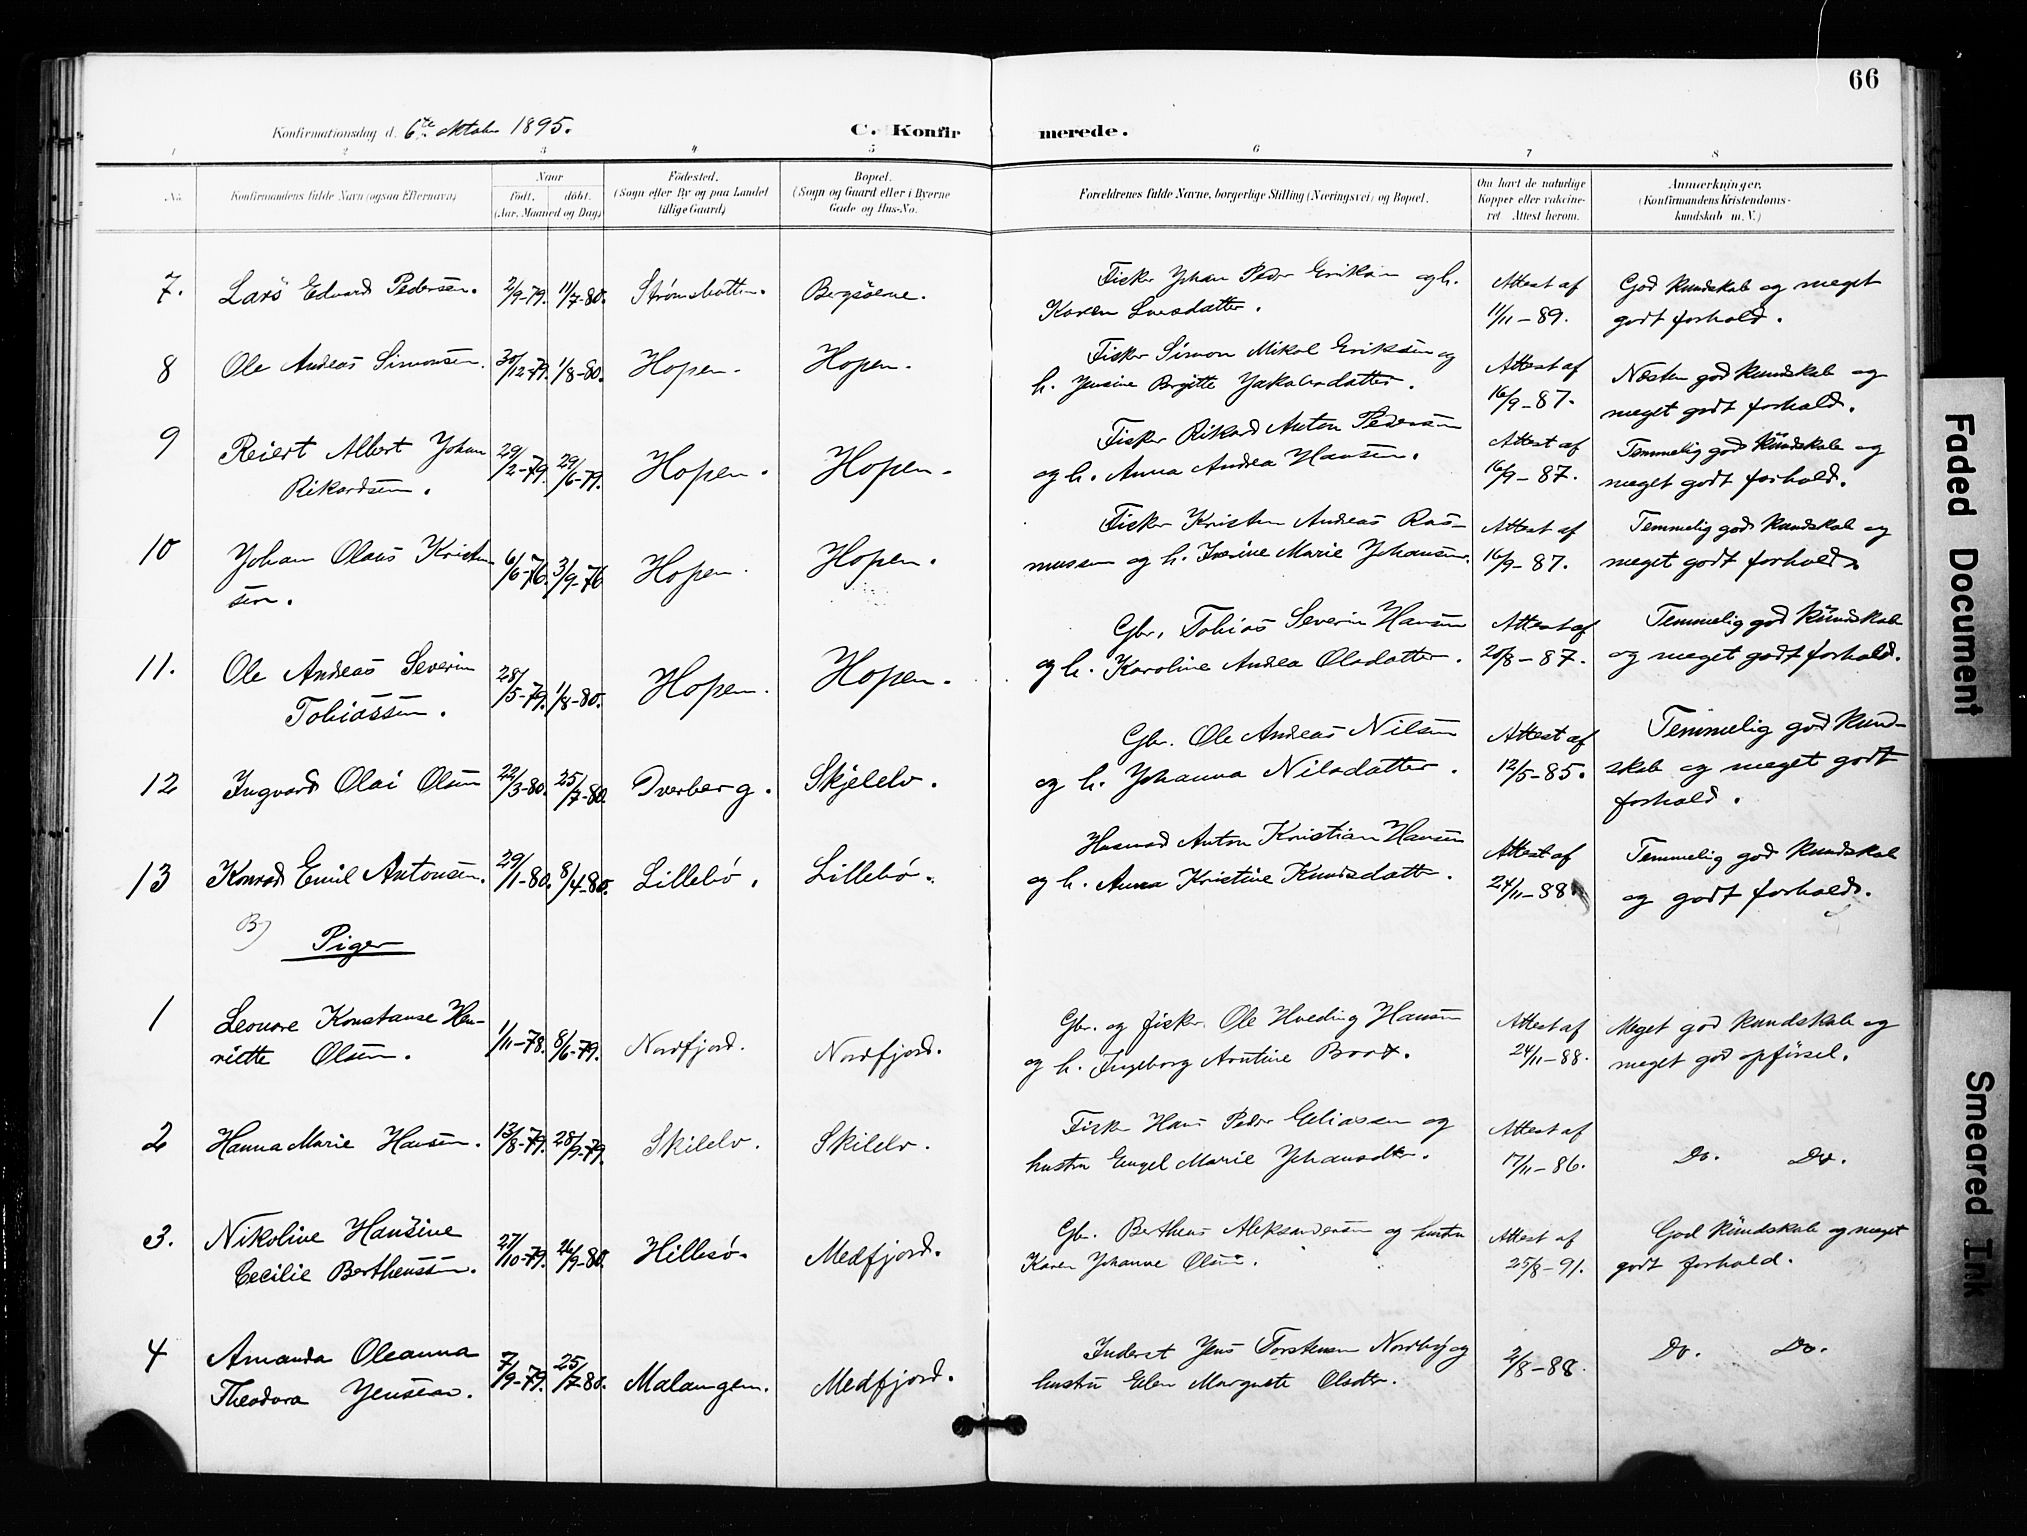 66
Konfirmationsdag d. 6te Oktober 1895.
C. Konfirmerede.
1 2 3 4 5 6 7 8
No.
Konfirmandens fulde Navn (ogsaa Efternavn)
Naar
födt. döbt.
(Aar, Maaned og Dag)
Födested.
(Sogn efter By og paa Landet
tillige Gaard)
Bopæl.
(Sogn og Gaard eller i Byerne
Gade og Hus-No.
Forældrenes fulde Navne, borgerlige Stilling (Næringsvei) og Bopæl.
Om havt de naturlige
Kopper eller vakcine-
ret Attest herom.
Anmærkninger.
(Konfirmandens Kristendoms-
kundskab m. V.)
7. Lars Edvard Pedersen. 2/9-79. 11/7-80. Strømsbotten. Bergsøerne.
Fisker Johan Peder Eriksen og h.
Karen Larsdatter.
Attest af
11/11-89.
God kundskab og meget
godt forhold.
8 Ole Andreas Simonsen. 30/12-79. 1/8-80. Hopen. Hopen.
Fisker Simon Mikal Eriksen og
h. Jensine Birgitte Jakobsdatter.
Attest af
16/9-87.
Næsten god kundskab og
meget godt forhold.
9 Reiert Albert Johan
Rikardsen.
29/2-79. 29/6-79. Hopen. Hopen.
Fisker Rikard Anton Pedersen
og h. Anna Andrea Hansen.
Attest af
16/9-87.
Temmelig god kundskab og
meget godt forhold.
10 Johan Olaus Kristen
sen.
6/6-76. 3/9-76 Hopen. Hopen.
Fisker Kristen Andreas Ras-
mussen og h. Marie Johansen.
Attest af
16/9-87.
Temmelig god kundskab og
meget godt forhold.
11. Ole Andreas Severin
Tobiassen.
28/5-79. 1/8-80. Hopen. Hopen.
Gbr. Tobias Severin Hansen
og h. Karoline Andrea Olsdatter.
Attest af
20/8-87.
Temmelig god kundskab
og meget godt forhold.
12 Ingvard Olai Olsen 22/3-80. 25/7-80. Dverberg. Skjelelv.
Gbr. Ole Andreas Nilsen
og h. Johanna Nilsdatter.
Attest af
12/5-85.
Temmelig god kund-
skab og meget godt
forhold.
13 Konrad Emil Antonsen. 29/1-80. 8/4-80. Lillebø. Lillebø.
Husmand Anton Kristian Hansen
og h. Anna Kristine Knudsdatter.
Attest af
24/11-88.
Temmelig god kundskab
og godt forhold.
B)
Piger
1 Leonore Konstanse Hen-
riette Olsen.
1/11-78. 8/6-79. Nordfjord. Nordfjord.
Gbr. og fisker Ole Hveding Hansen
og h. Ingeborg Arntine
Attest af
24/11-88.
Meget god kundskab og
meget god opførsel.
2 Hanna Marie Hansen. 13/8-79. 28/9-79. Skilelv. Skilelv.
Fisker Hans Peder Eliassen og
hustru Engel Marie Johansdtr.
Attest af
17/11-86.
Do. Do.
3. Nikoline Hansine
Cecilie Berthenssen.
27/10-79. 26/9-80. Hillesø. Medfjord.
Gbr. Berthens Aleksandersen og hustru
Karen Johanne Olsen.
Attest af
25/8-91.
God kundskab og meget
godt forhold.
4 Amanda Oleanna
Theodora Jensen.
7/9-79. 25/7-80. Malangen. Medfjord.
Inderst Jens Torstensen Nordby og
hustru Elen Margrete Olsdtr.
2/8-88.
Do. Do.
Faded Document
Smeared Ink